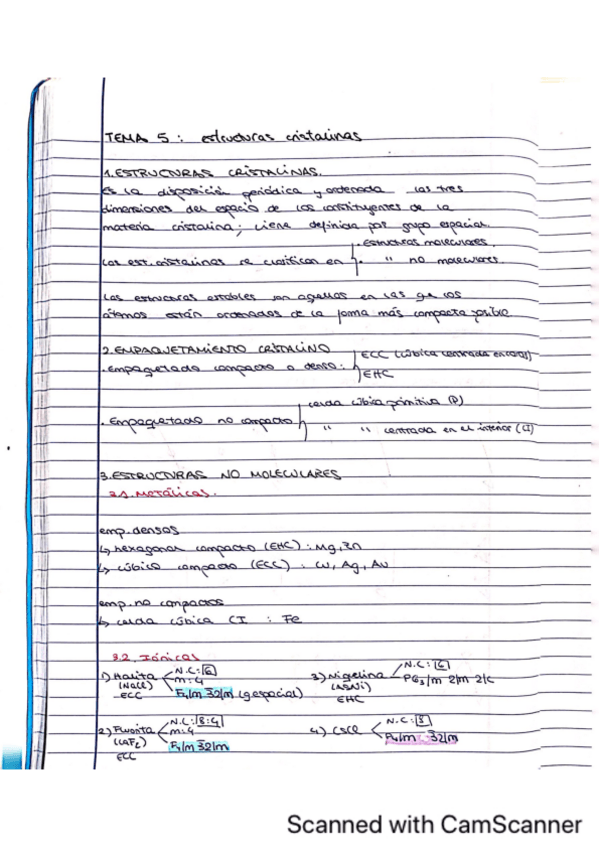 TEMA 5: estructuras cristalinas
1. ESTRUCTURAS CRISTALINAS.
Es la disposición periódica y ordenada las tres
dimensiones del espacio de los constituyentes de la
materia cristalina; viene definida por grupo espacial.
Las est. cristalinas se clasifican en
. estructuras moleculares.
. " no moleculares.
Las estructuras estables son aquellas en las que los
átomos están ordenados de la forma más compacta posible
2. EMPAQUETAMIENTO CRISTALINO
. Empaquetado compacto o denso:
ECC (cúbica centrada en caras)
EHC
. Empaquetado no compacto
celda cúbica primitiva (P)
" " centrada en el interior (CI)
3. ESTRUCTURAS NO MOLECULARES
3.1. Metálicas.
emp. densos
↳ hexagonal compacto (EHC): Mg, Zn
↳ cúbico compacto (ECC): Cu, Ag, Au
emp. no compactos
↳ celda cúbica CI : Fe
3.2. Iónicas
1) Halita
(NaCl)
ECC
N.C: 6
m: 4
F4/m 3̅ 2/m (g espacial)
2) Fluorita
(CaF2)
ECC
N.C: 8:4
m: 4
F4/m 3̅ 2/m
3) Niquelina
(AsNi)
EHC
N.C: 6
P63/m 2/m 2/c
4) CsCl
N.C: 8
P4/m 3̅ 2/m
Scanned with CamScanner